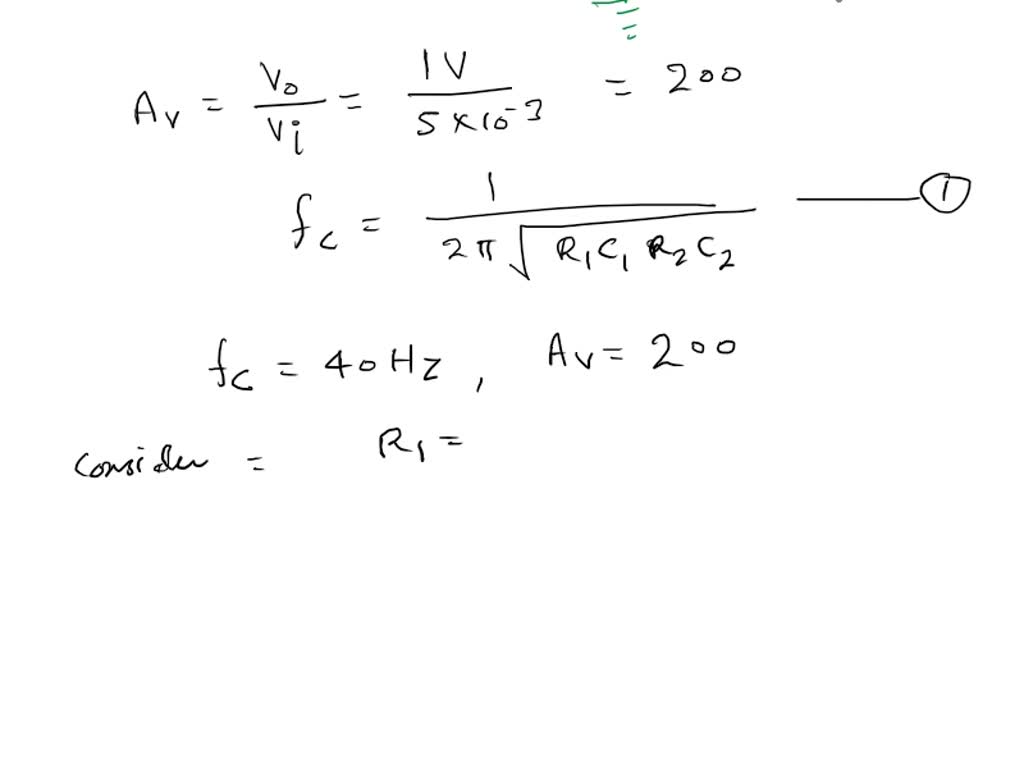 Av = Vo/Vi = 1V/5×10⁻³ = 200
fc = 1/2π√R₁C₁R₂C₂ ——— ①
fc = 40Hz, Av = 200
consider = R₁ =